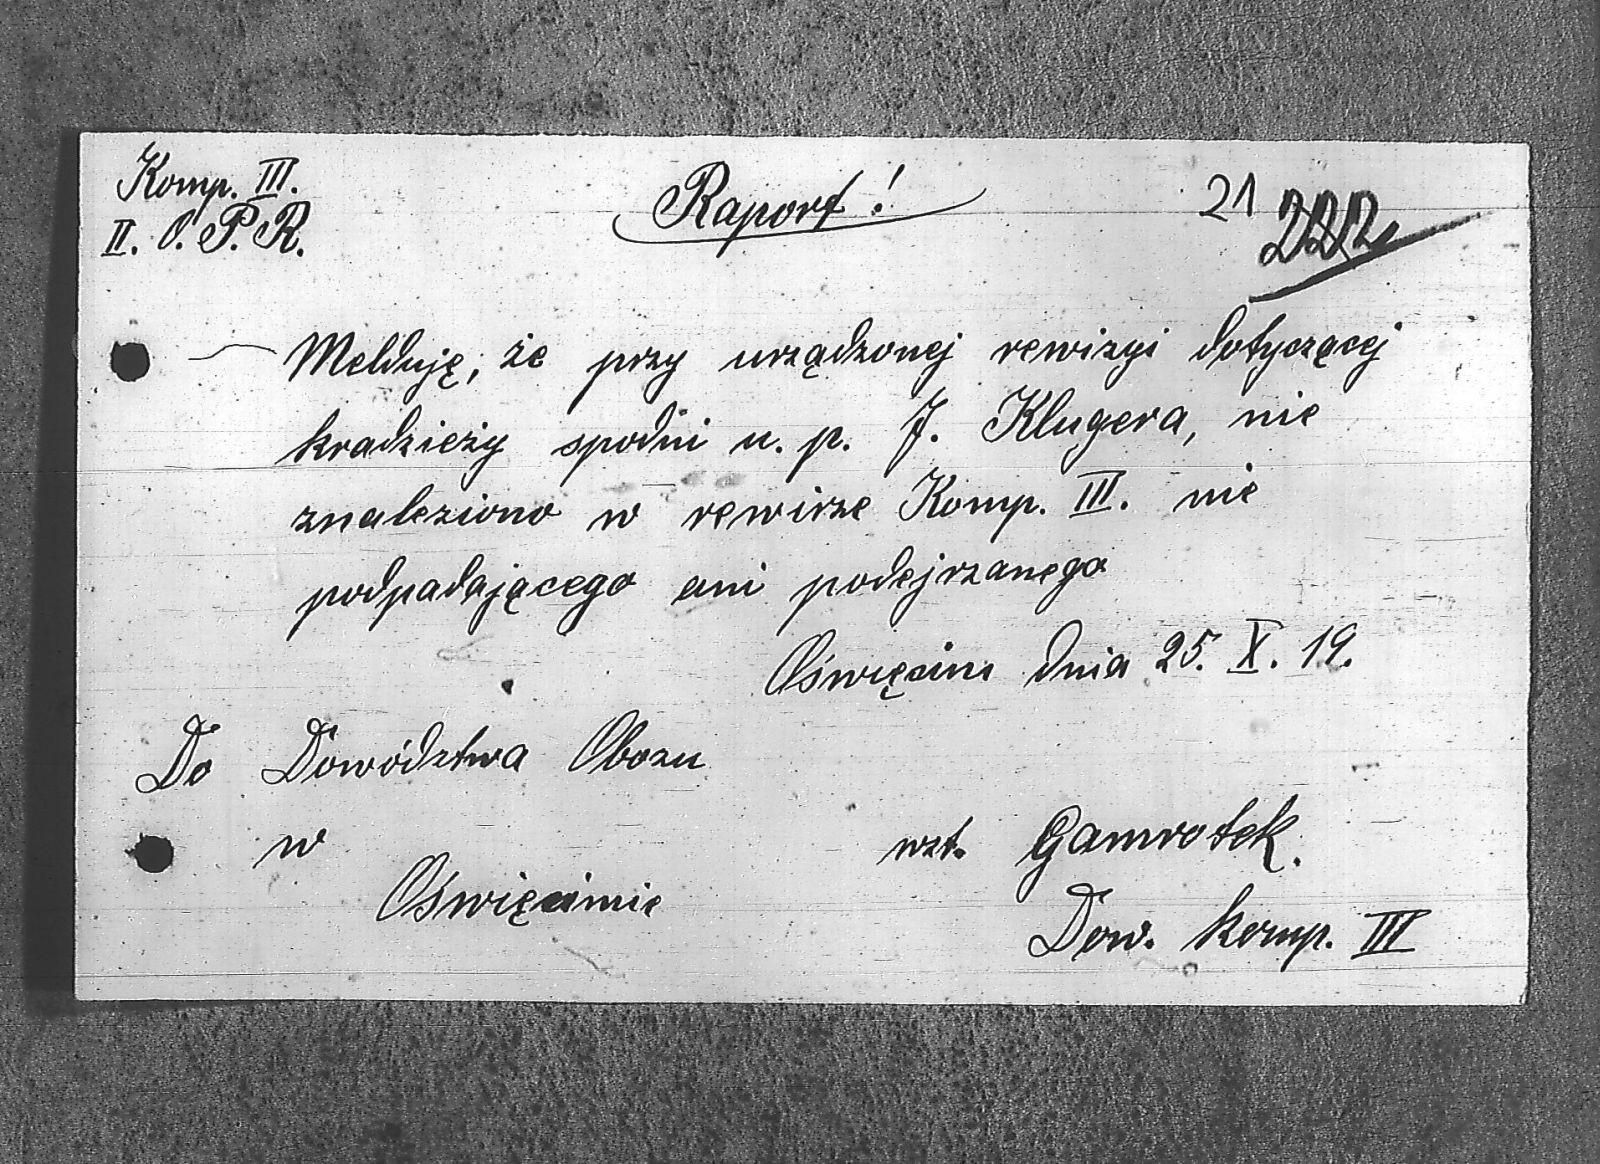 Komp. III.
II. O. P. R.
Raport!
21
222
Melduję, że przy urządzonej rewizyi dotyczącej
kradzieży spodni u. p. J. Klugera, nie
znaleziono w rewirze Komp. III. nie
podpadającego ani podejrzanego
Oświęcim dnia 25. X. 19.
Do Dowództwa Obozu
w
Oświęcimie
wzt. Gamrotek.
Dow. komp. III